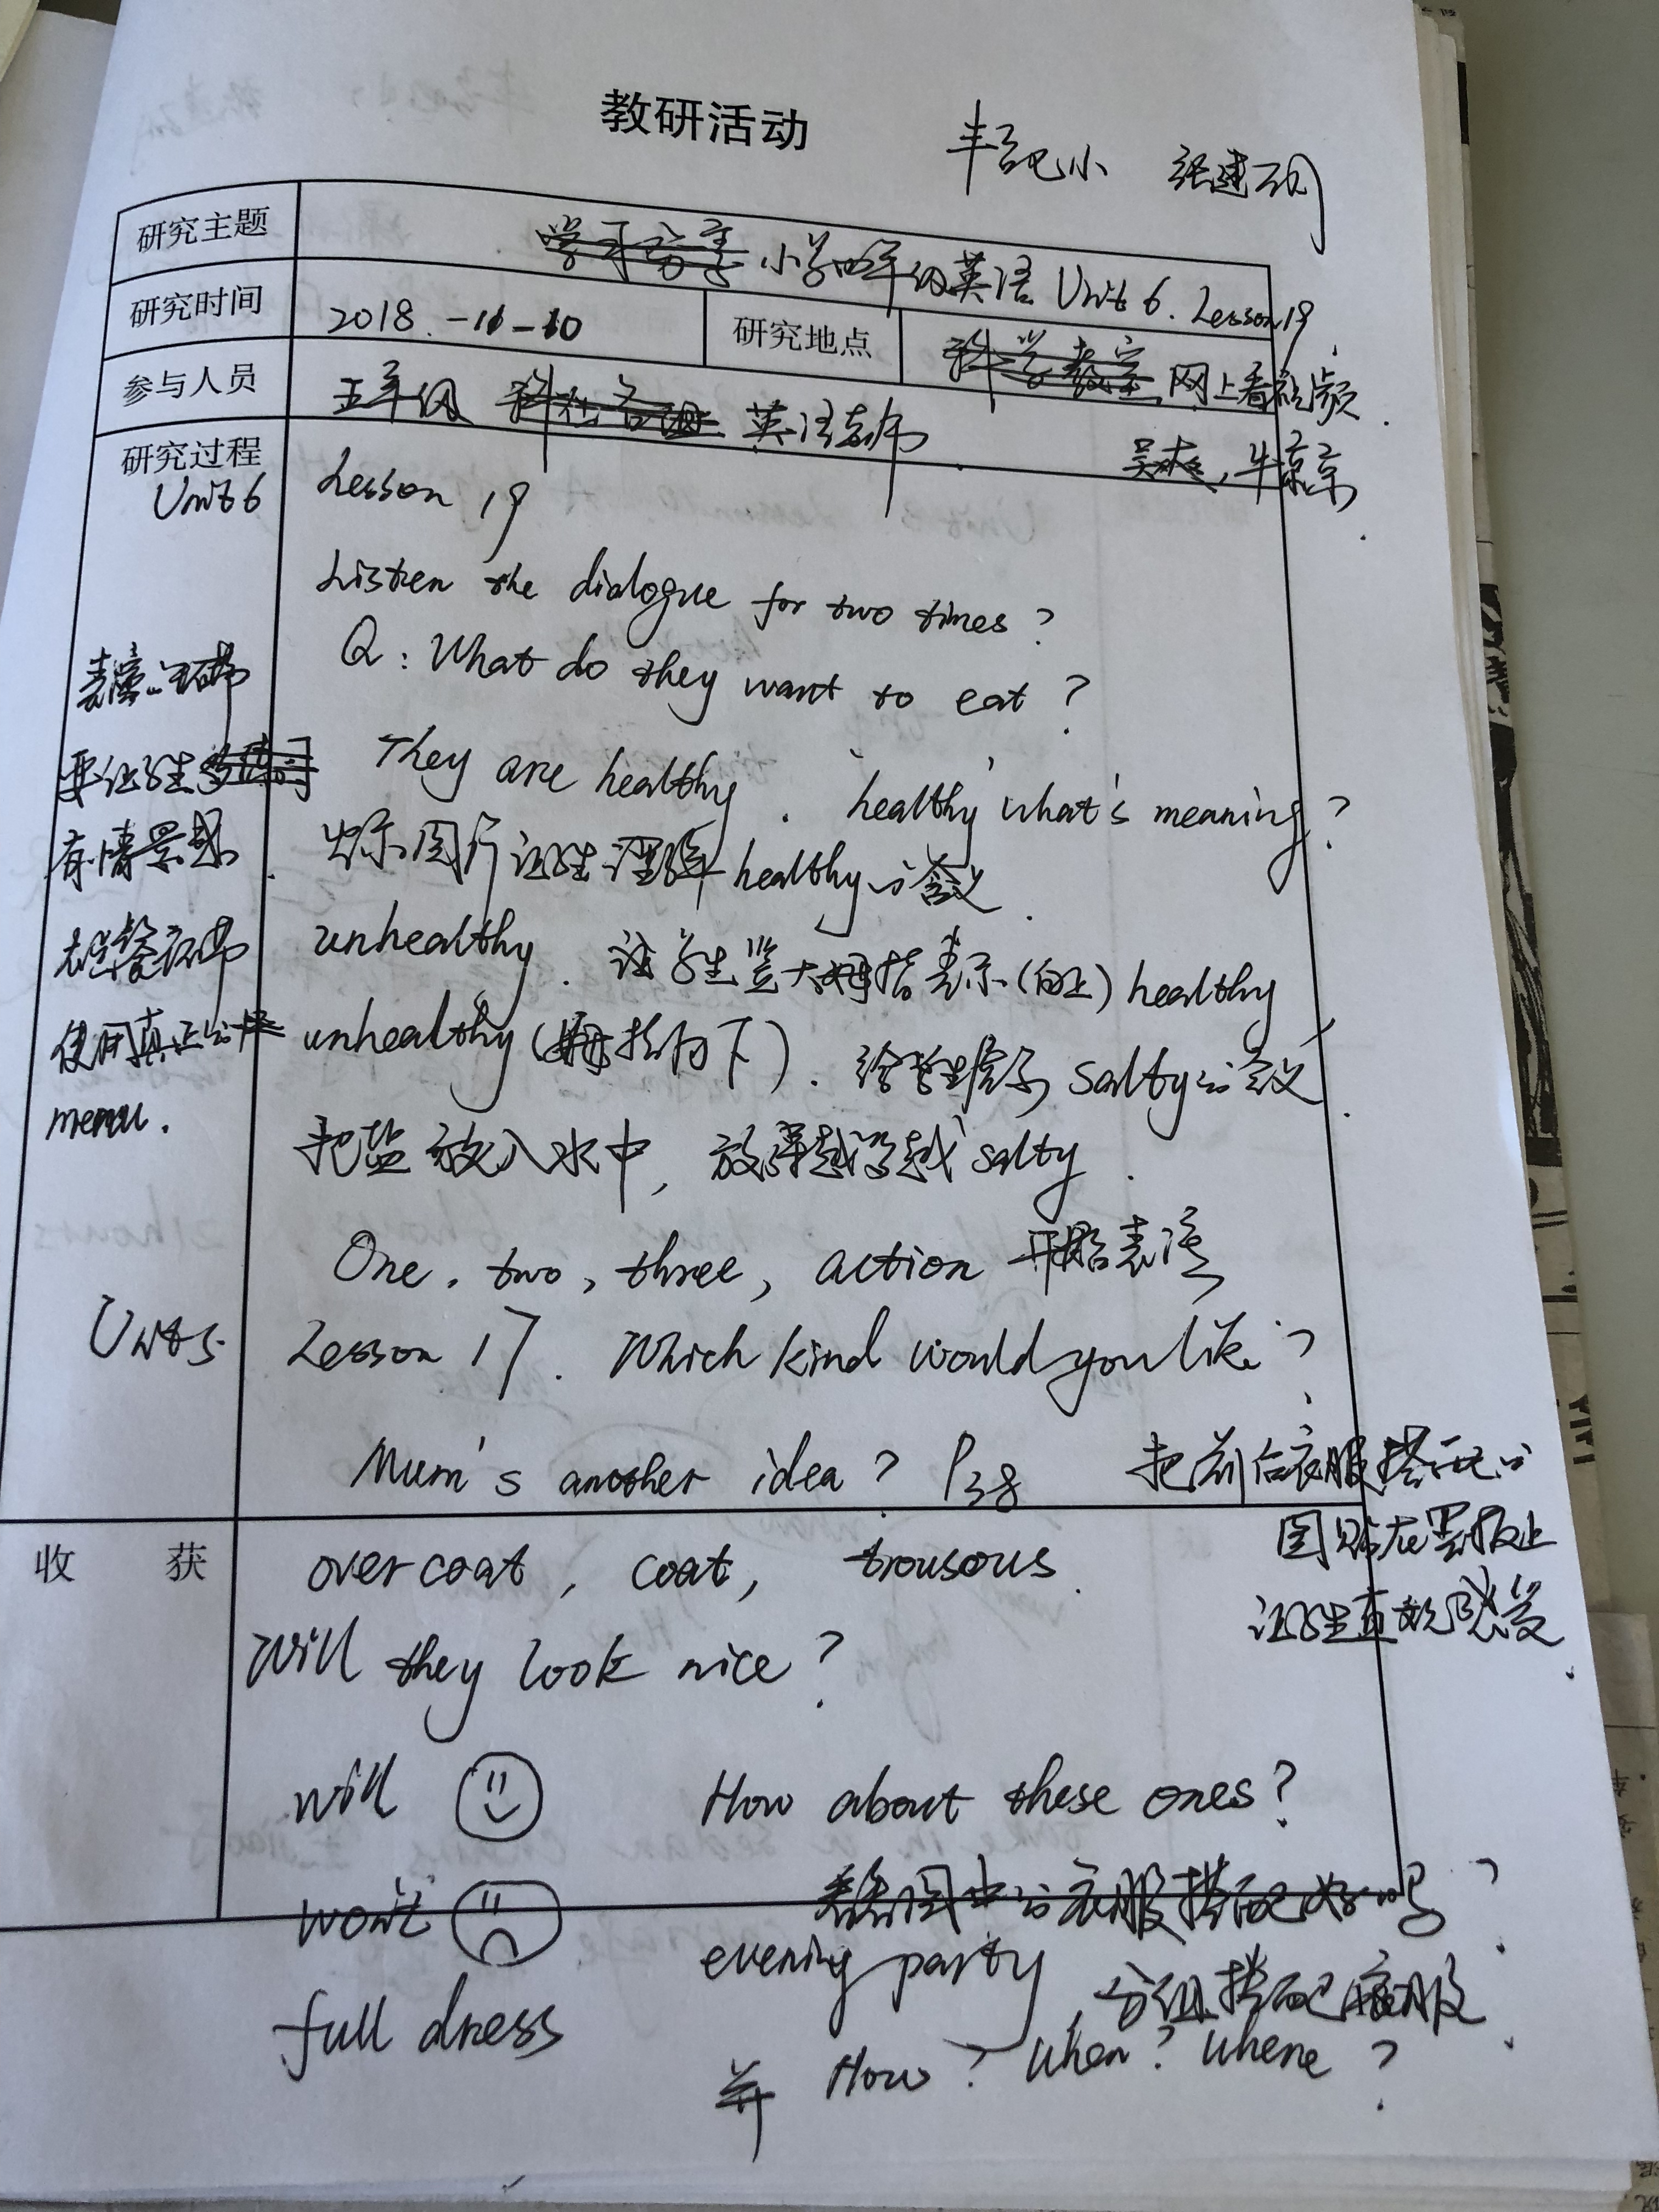 教研活动
丰台巴小 张建
研究主题
学习分享 小学四年级英语 Unit 6. Lesson 19
研究时间
2018.-11-10
研究地点
科学教室 网上看视频
参与人员
五年级 英语教师
吴爽,牛京京
研究过程
Unit 6
Lesson 19
Listen the dialogue for two times?
Q: What do they want to eat?
表演
They are healthy. "healthy" what's meaning?
要让学生多练习
有情景感.
出示图片让学生理解 healthy 的含义.
unhealthy. 让学生竖大拇指表示(向上) healthy
unhealthy (拇指向下). 给学生 salty 的含义.
点餐
使用真正的
menu.
把盐放入水中, 放得越多越 salty.
One, two, three, action 开始表演
Unit 5.
Lesson 17. Which kind would you like?
Mum's another idea? P38
把前后衣服搭配的
图贴在黑板上
让学生直观感受.
收 获
overcoat, coat, trousous.
Will they look nice?
will
How about these ones?
won't
看看图中的衣服搭配好吗?
evening party, 分组搭配衣服.
full dress
并 How? When? Where?